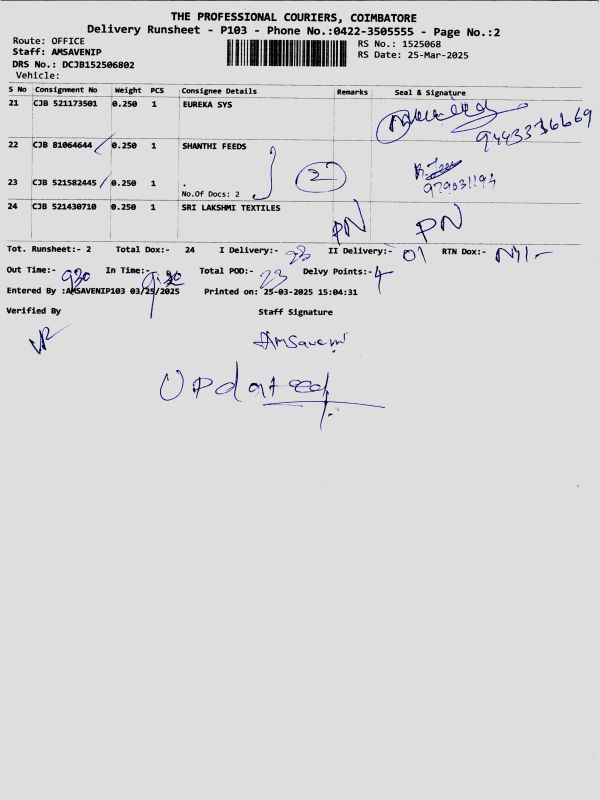 THE PROFESSIONAL COURIERS, COIMBATORE
Delivery Runsheet - P103 - Phone No.:0422-3505555 - Page No.:2
Route: OFFICE
RS No.: 1525068
Staff: AMSAVENIP
RS Date: 25-Mar-2025
DRS No.: DCJB152506802
Vehicle:
S No Consignment No Weight PCS Consignee Details Remarks Seal & Signature
21 CJB 521173501 0.250 1 EUREKA SYS
9443336669
22 CJB 81064644 0.250 1 SHANTHI FEEDS
2
23 CJB 521582445 0.250 1 .
No.Of Docs: 2
24 CJB 521430710 0.250 1 SRI LAKSHMI TEXTILES
PN PN
Tot. Runsheet:- 2 Total Dox:- 24 I Delivery:- 23 II Delivery:- 01 RTN Dox:- Nil-
Out Time:- 930 In Time:- 9.30 Total POD:- 23 Delvy Points:- 4
Entered By :AMSAVENIP103 03/25/2025 Printed on: 25-03-2025 15:04:31
Verified By Staff Signature
Amsaveni
Updated